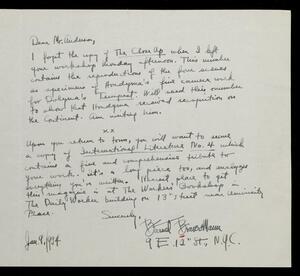 Dear Mr. Anderson,
I forgot the copy of The Close Up when I left
your workshop Monday afternoon. This number
contains the reproductions of the four scenes
as specimens of Hondyma's fine camera work
for Dekyma's Tempest. Will send this number
to show that Hondyma received recognition on
the Continent. Am writing him.
x x
Upon your return to town, you will want to secure
a copy of International Literature No. 4 which
contains a fine and comprehensive tribute to
your work. It's a long piece too, and analyzes
everything you've written. Nearest place to get
this magazine is at The Workers' Bookshop in
The Daily Worker building on 13th, street near University
Place.
Sincerely,
Jan. 9, 1934
9 E. 12th St., N.Y.C.